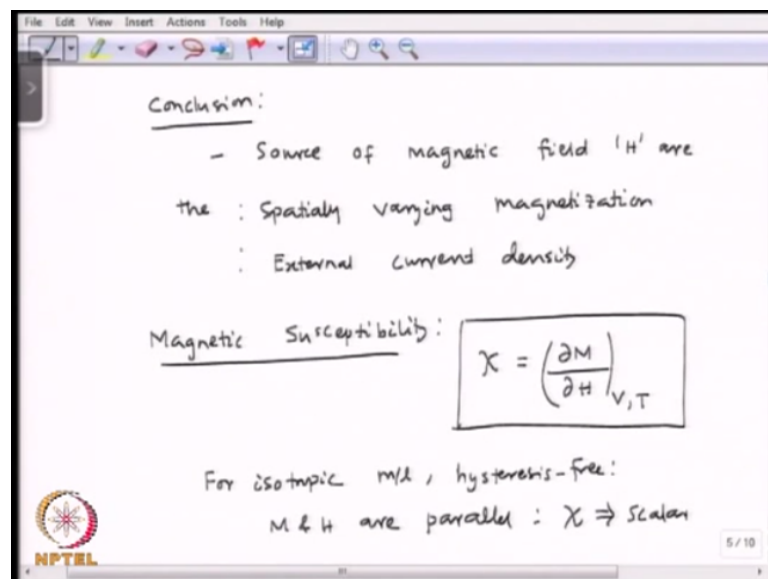 File Edit View Insert Actions Tools Help
Conclusion:
- Source of magnetic field 'H' are
the : Spatialy varying magnetization
: External current density
Magnetic Susceptibility: χ = (∂M/∂H)V,T
For isotropic m/l, hysteresis-free:
M & H are parallel : χ ⇒ Scalar
5/10
NPTEL